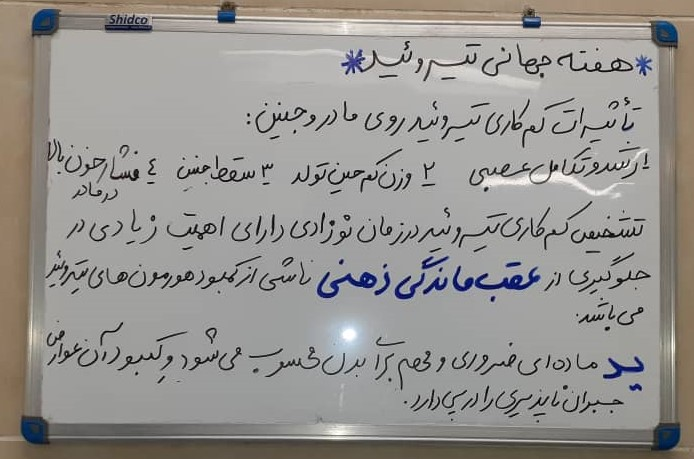 Shidco
* هفته جهانی تیروئید *
تأثیرات کم کاری تیروئید روی مادر و جنین:
۱ رشد و تکامل عصبی ۲ وزن کم حین تولد ۳ سقط جنین ٤ فشار خون بالا
در مادر
تشخیص کم کاری تیروئید در زمان نوزادی دارای اهمیت زیادی در
جلوگیری از عقب ماندگی ذهنی ناشی از کمبود هورمون های تیروئید
می باشد.
ید ماده ای ضروری و مهم برای بدن محسوب می شود و کمبود آن عوارض
جبران ناپذیری را در پی دارد.